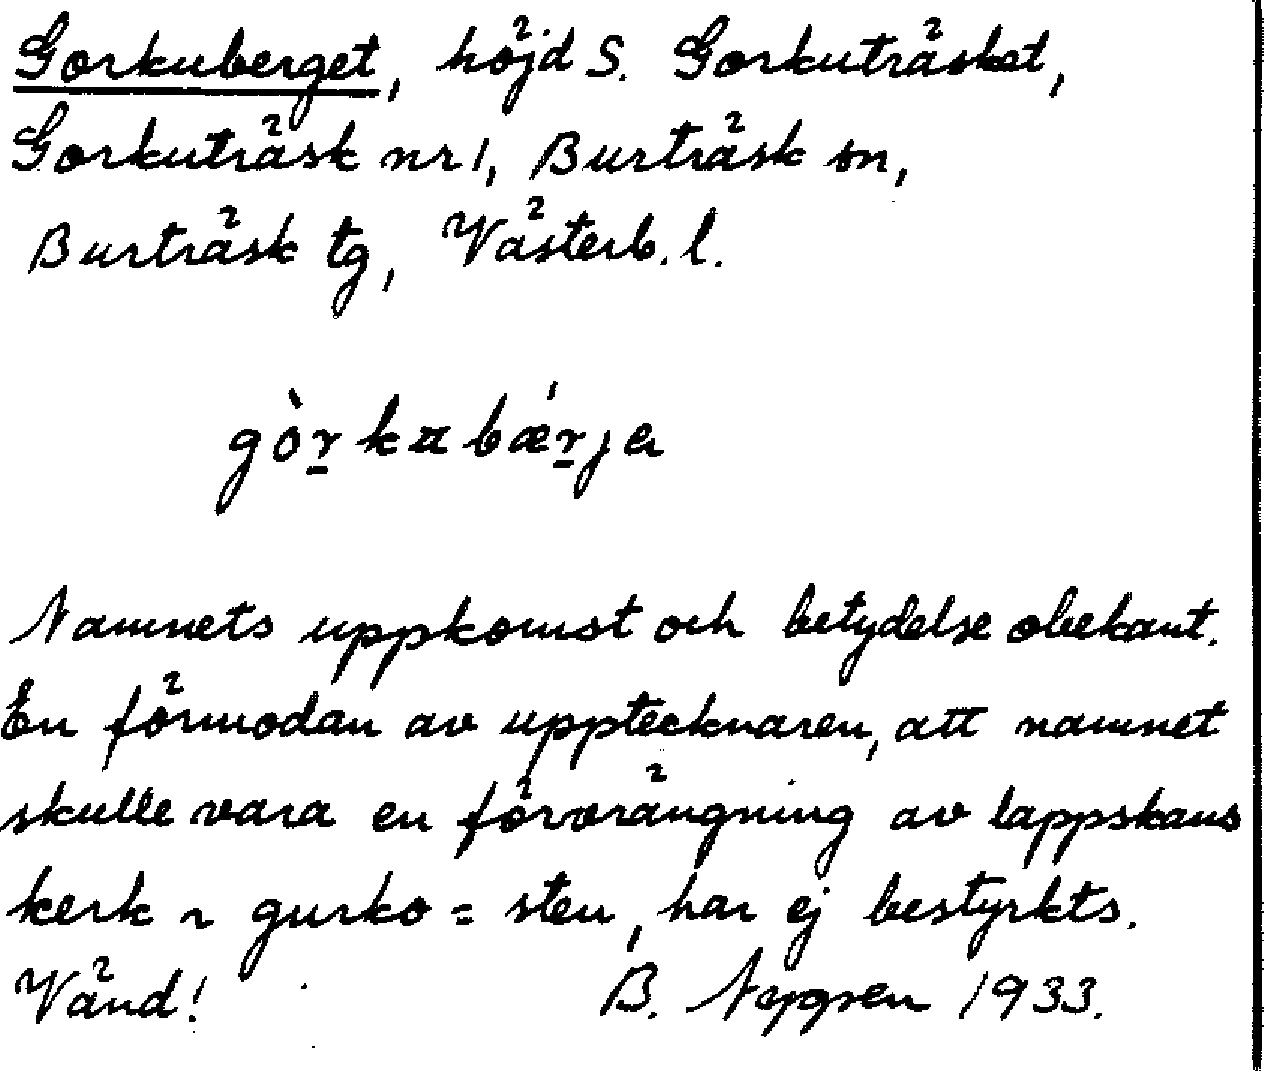 Gorkuberget, höjd S. Gorkuträsket,
Gorkuträsk nr 1, Burträsk sn,
Burträsk tg, Västerb. l.
gòr̲kabǽr̲jα
Namnets uppkomst och betydelse obekant.
En förmodan av upptecknaren, att namnet
skulle vara en förvrängning av lappskans
kerk ~ gurko = sten, har ej bestyrkts.
Vänd! B. 1933.